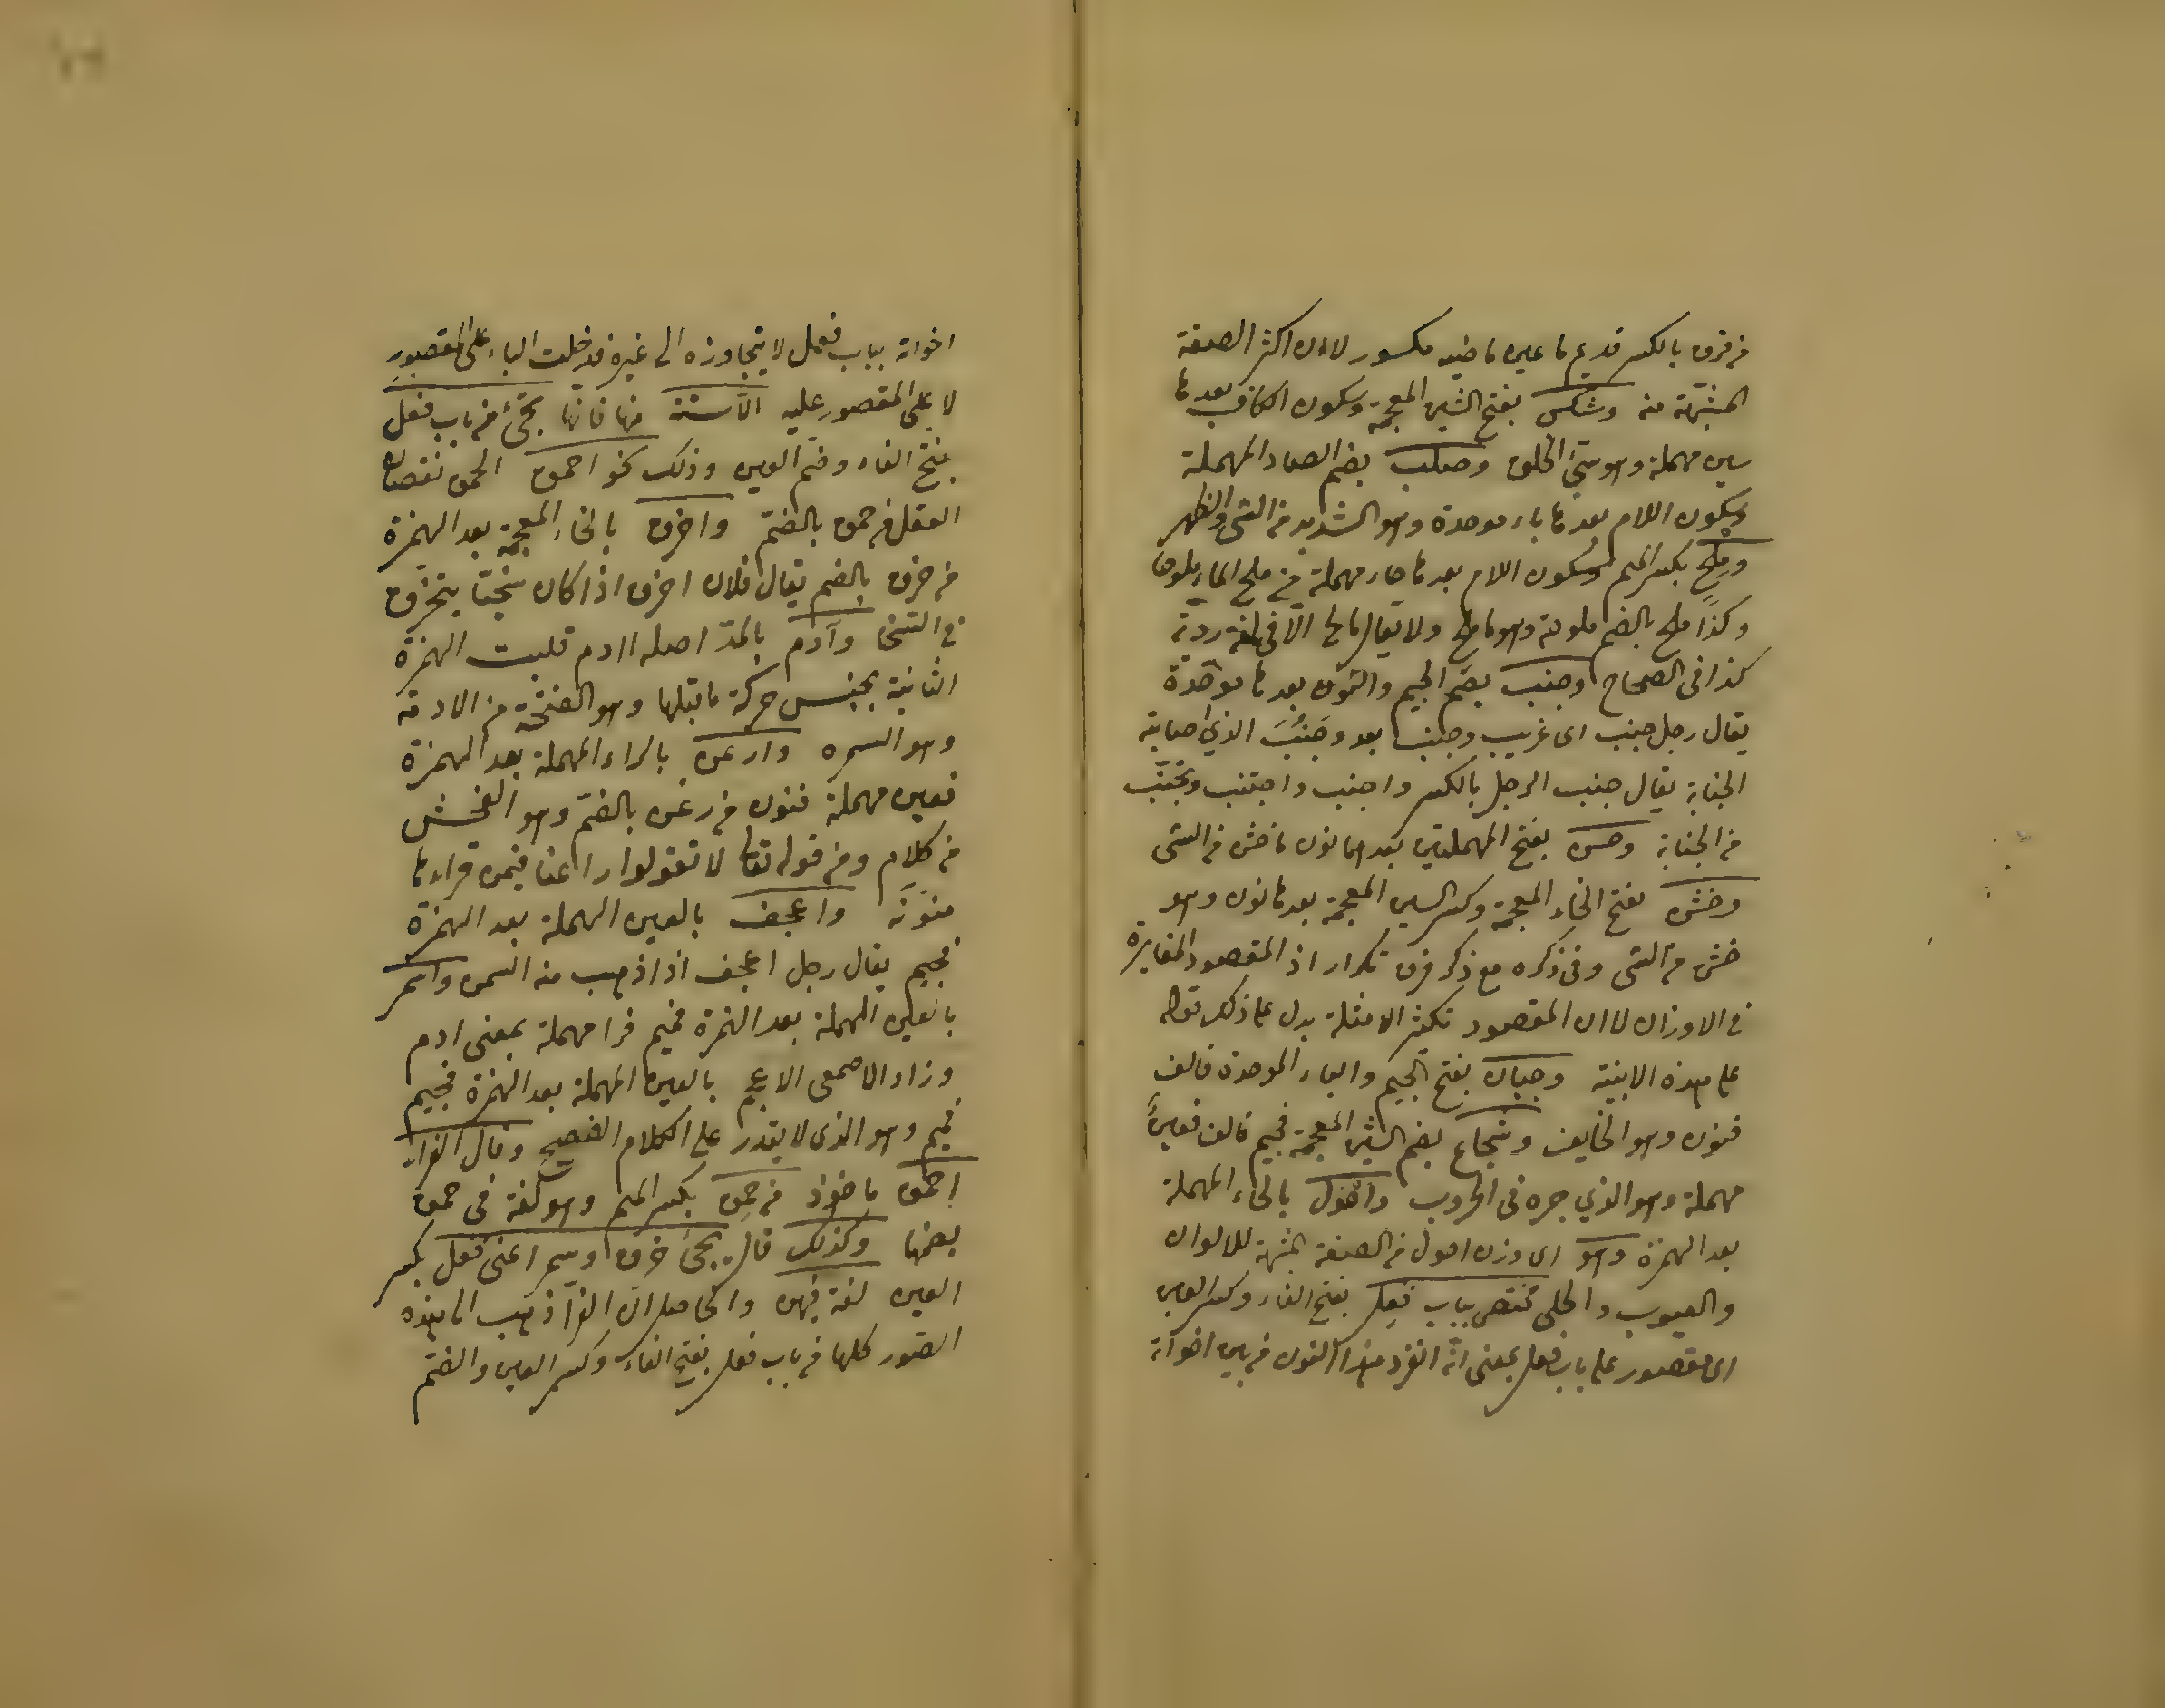 من فرق بالكسر قديم ما عين ماضيه مكسور لاان اكثر الصفة
المشبهة منه وشكس بفتح الشين المعجمة وسكون الكاف بعدها
سين مهملة وهو سيئ الخلق وصلب بضم الصاد المهملة
وسكون اللام بعدها باء موحدة وهو الشديد من الشئ والظهر
وملح بكسر الميم وسكون اللام بعدها حاء مهملة من ملح الماء ملوحا
وكذا ملح بالضم ملوحة وهو ملح ولا يقال مالح الا فى لغة ردية
كذا فى الصحاح وجنب بضم الجيم والنون بعدها موحدة
يقال رجل جنب اى غريب وجنب بعد وجنب الذي اصابته
الجنابة يقال جنب الرجل بالكسر واجنب واجتنب وتجنب
من الجنابة وحسن بفتح المهملتين بعدهما نون ما خشن من الشى
وخشن بفتح الخاء المعجمة وكسر الشين المعجمة بعدها نون وهو
خشن من الشى وفى ذكره مع ذكر فرق تكرار اذ المقصود المغايرة
فى الاوزان لاان المقصود تكثير الامثلة يدل على ذلك قوله
على هذه الابنية وجبان بفتح الجيم والباء الموحدة فالف
فنون وهو الخايف وشجاع بضم الشين المعجمة فجيم فالف فعين
مهملة وهو الذي جره فى الحروب واحول بالحاء المهملة
بعد الهمزة وهو اى وزن احول من الصفة المشبهة للالوان
والعيوب والحلى مختص بباب فعل بفتح الفاء وكسر العين
اى مقصور على باب فعل بمعنى انه انفرد هذا النون من بين اخواته
اخواته بباب فعل لا يتجاوزه الى غيره فدخلت الباء على المقصور
لا على المقصور عليه الا ستة منها فانها تجئ من باب فعل
بفتح الفاء وضم العين وذلك نحو احمق الحمق نقصان
العقل من حمق بالضم واخرق بالخاء المعجمة بعد الهمزة
من خرق بالضم يقال فلان اخرق اذا كان سخيا يتخرق
فى السخا وآدم بالمد اصله اادم قلبت الهمزة
الثانية بجنس حركة ما قبلها وهو الفتحة من الادمة
وهو السمره وارعن بالراء المهملة بعد الهمزة
فعين مهملة فنون من رعن بالضم وهو الفحش
من كلام ومن قوله تعا لا تقولوا راعنا فيمن قراءها
منونه واعجف بالعين المهملة بعد الهمزة
فجيم يقال رجل اعجف اذا ذهب منه السمن واسمر
بالسين المهملة بعد الهمزة فميم فرا مهملة بمعنى ادم
وزاد الاصمعى الاعجم بالعين المهملة بعد الهمزة فجيم
فميم وهو الذى لا يقدر على الكلام الفصيح وقال الفراء
احمق ماخوذ من حمق بكسر الميم وهو لغة فى حمق
بضمها وكذلك قال يجئ خرق وسمر اعنى فعل بكسر
العين لغة فيهن والحاصل ان الفرا ذهب الى هذه
الصور كلها من باب فعل بفتح الفاء وكسر العين والضم